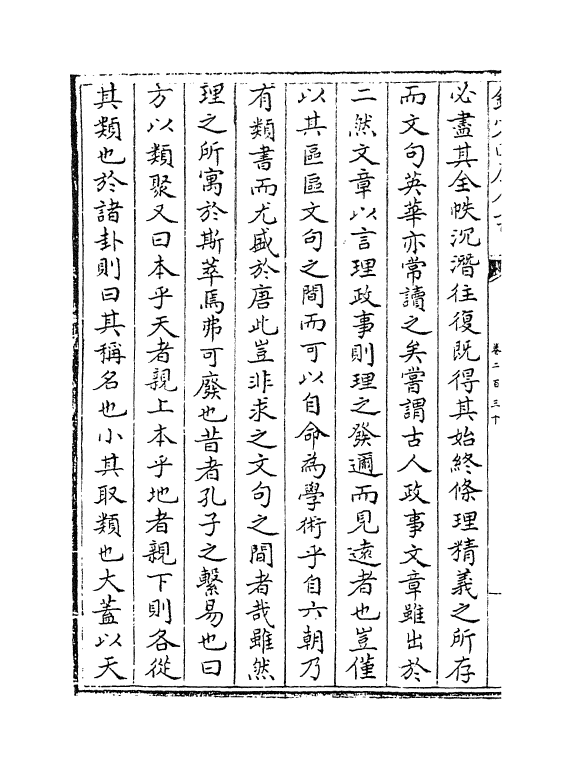 卷二百三十
必盡其全帙沉潛往復既得其始終條理精義之所存
而文句英華亦常讀之矣嘗謂古人政事文章雖出於
二然文章以言理政事則理之發邇而見遠者也豈僅
以其區區文句之間而可以自命為學術乎自六朝乃
有類書而尤盛於唐此豈非求之文句之間者哉雖然
理之所寓於斯萃焉弗可廢也昔者孔子之繫易也曰
方以類聚又曰本乎天者親上本乎地者親下則各從
其類也於諸卦則曰其稱名也小其取類也大蓋以天